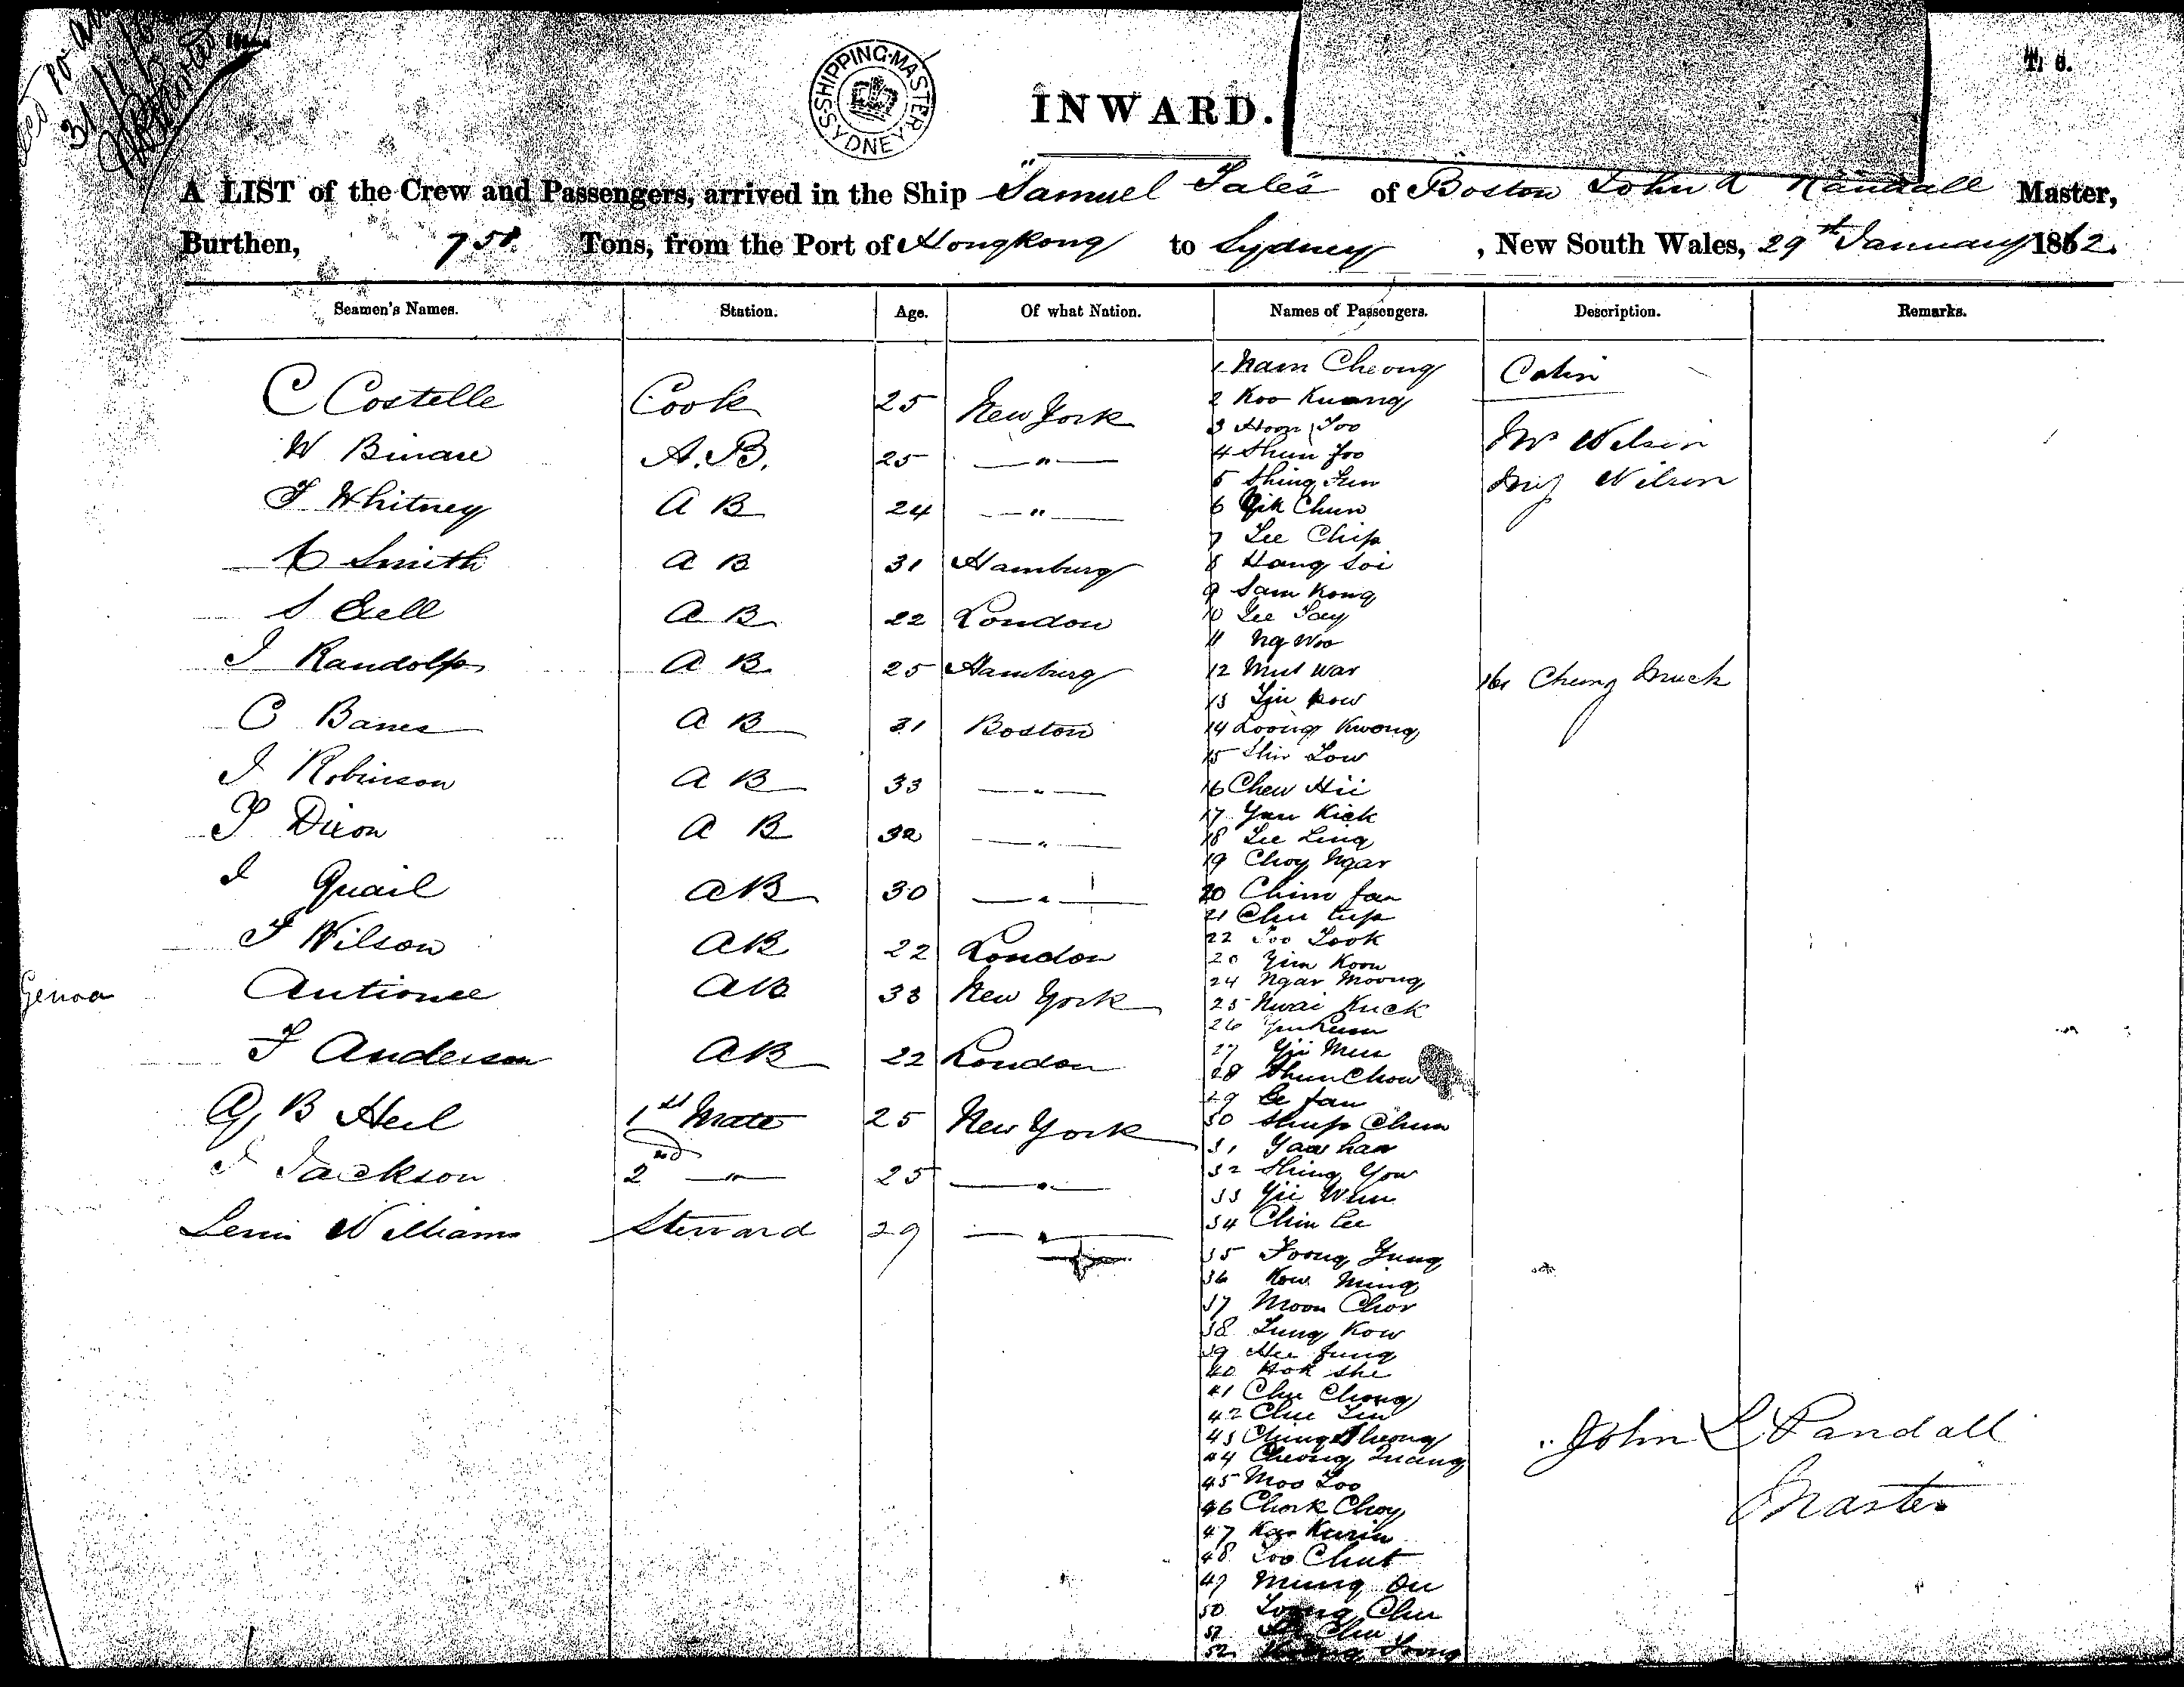 SHIPPING MASTER SYDNEY
T. 6.
INWARD.
A LIST of the Crew and Passengers, arrived in the Ship Samuel of Boston John Randall Master,
Burthen, 758 Tons, from the Port of Hongkong to Sydney, New South Wales, 29th January 1862.
Seamen's Names. Station. Age. Of what Nation. Names of Passengers. Description. Remarks.
C Costelle Cook 25 New York
W A.B. 25 — " —
F Whitney A B 24 — " —
C Smith A B 31 Hamburg
S A B 22 London
J Randolph A B 25 Hamburg
C Banes A B 31 Boston
J Robinson A B 33 — " —
P Dixon A B 32 — " —
J Quail A B 30 — " —
F Wilson A B 22 London
Genoa Antionee A B 33 New York
F Anderson A B 22 London
G B 1st Mate 25 New York
J Jackson 2nd — " — 25 — " —
Lewis Williams Steward 29 — " —
1 Nam Cheong
2 Koo Kuang
3 Hoon Foo
4 Shun Foo
5 Shing
6 Chun
7 Lee Chip
8 Hang Soi
9 Sam Kong
10 Lee
11 Ng Woo
12 War
13 Kow
14 Loong Kwong
15 Low
16 Chew Hii
17 Yan Kick
18 Lee Ling
19 Choy Ngar
20 Chim fan
21 Chu
22 Look
23 Yim Koon
24 Ngar Moong
25 Kwai Kuck
26
27 Yii
28 Shun Chow
29 Le fan
30 Shup Chun
31 Yaw han
32 Shing You
33 Yii Wun
34 Chin Lee
35 Foong Yung
36 Kow Ming
37 Moon Chor
38 Lung Kow
39 Hee fung
40 Hok She
41 Chu Chong
42 Chu
43 Ching Cheong
44 Cheong Quang
45 Moo Loo
46 Chork Choy
47 Kar
48 Loo Chut
49 Mung On
50 Chu
51 Chu
52
Cabin
Mr Wilson
Wilson
Cheung Muck
John L Randall
Master